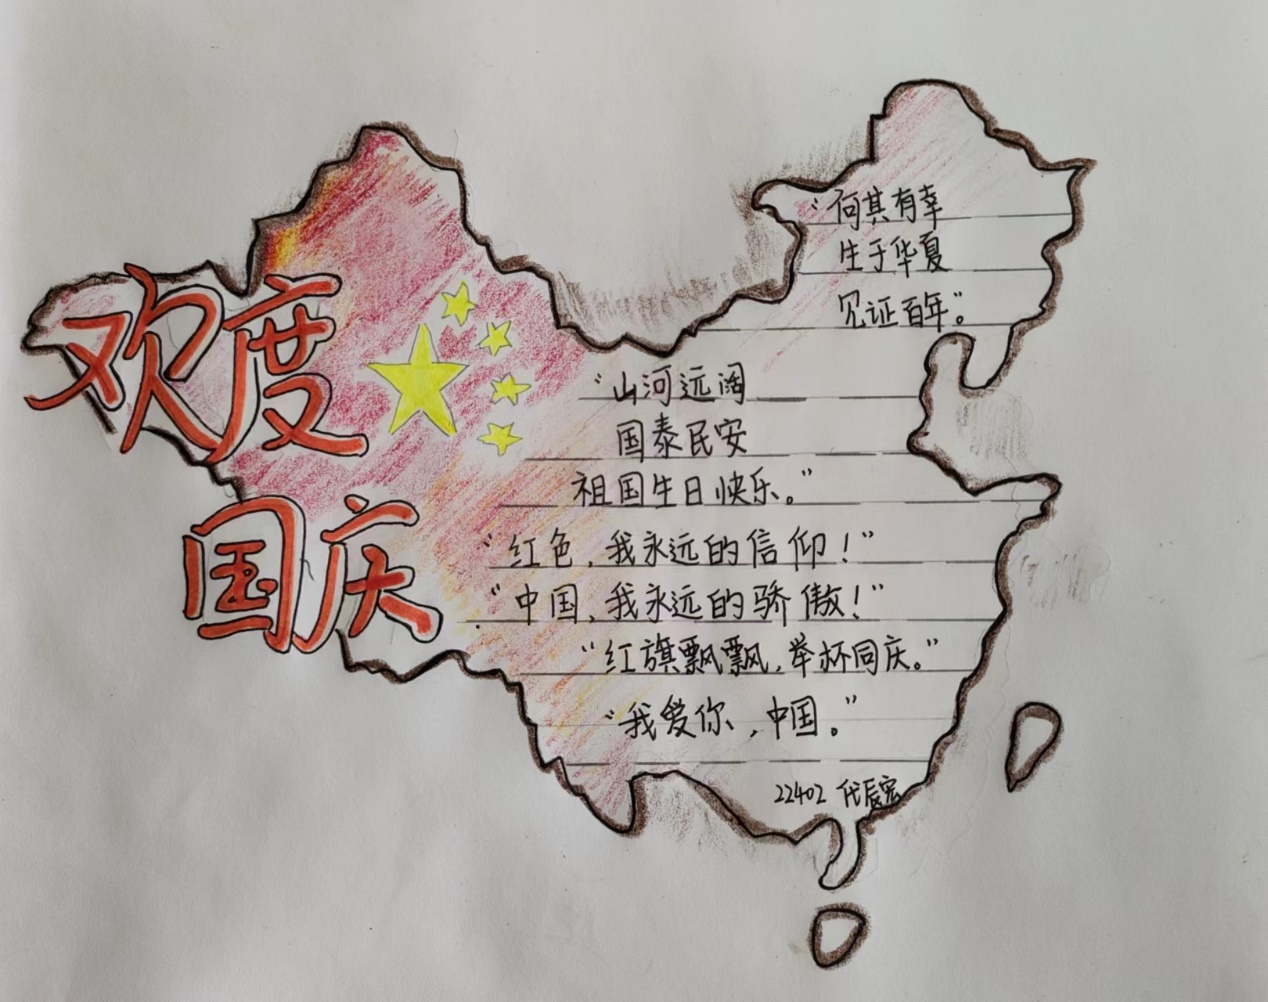 欢度
国庆
“何其有幸
生于华夏
见证百年”。
“山河远阔
国泰民安
祖国生日快乐。”
“红色，我永远的信仰！”
“中国，我永远的骄傲！”
“红旗飘飘，举杯同庆。”
“我爱你，中国。”
22402 代辰宏